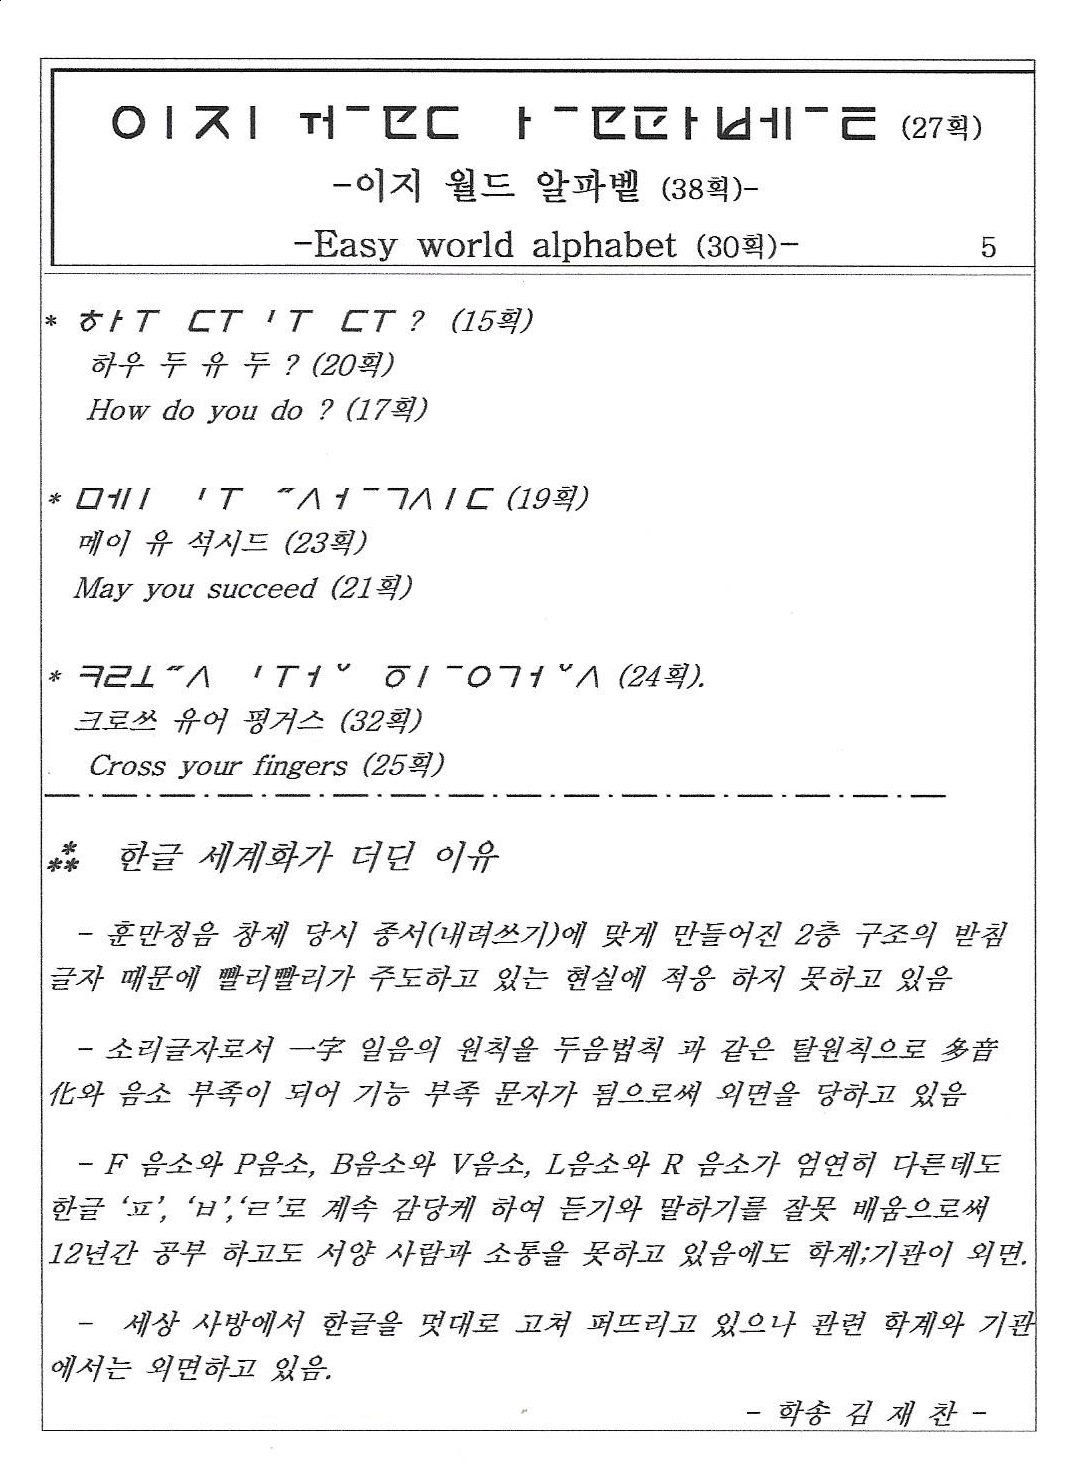 (27획)
-이지 월드 알파벨 (38획)-
-Easy world alphabet (30획)-
5
* (15획)
하우 두 유 두 ? (20획)
How do you do ? (17획)
* (19획)
메이 유 석시드 (23획)
May you succeed (21획)
* (24획).
크로쓰 유어 핑거스 (32획)
Cross your fingers (25획)
⁂ 한글 세계화가 더딘 이유
- 훈만정음 창제 당시 종서(내려쓰기)에 맞게 만들어진 2층 구조의 받침
글자 때문에 빨리빨리가 주도하고 있는 현실에 적응 하지 못하고 있음
- 소리글자로서 一字 일음의 원칙을 두음법칙 과 같은 탈원칙으로 多音
化와 음소 부족이 되어 기능 부족 문자가 됨으로써 외면을 당하고 있음
- F 음소와 P음소, B음소와 V음소, L음소와 R 음소가 엄연히 다른데도
한글 ‘ㅍ’, ‘ㅂ’,‘ㄹ’로 계속 감당케 하여 듣기와 말하기를 잘못 배움으로써
12년간 공부 하고도 서양 사람과 소통을 못하고 있음에도 학계;기관이 외면.
- 세상 사방에서 한글을 멋대로 고쳐 퍼뜨리고 있으나 관련 학계와 기관
에서는 외면하고 있음.
- 학송 김 재 찬 -